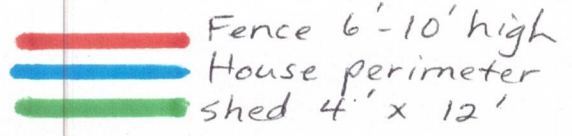 Fence 6'-10' high
House perimeter
shed 4' x 12'